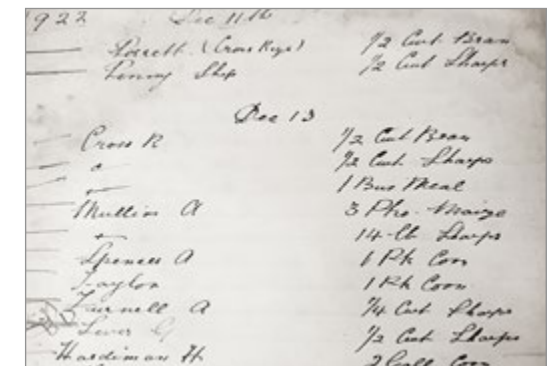 1922 Dec 11th
Porrett (Cross Keys) 1/2 Cwt Bran
Penny Shep 1/2 Cwt Sharps
Dec 13
Cross R 1/2 Cwt Bran
" 1/2 Cwt Sharps
" 1 Bus Meal
Mullins A 3 Pks Maize
" 14 Lb Sharps
Spencer A 1 Pk Corn
Taylor 1 Pk Corn
Furnell A 1/4 Cwt Sharps
Lever G 1/2 Cwt Sharps
Hardiman H 2 Gall Corn